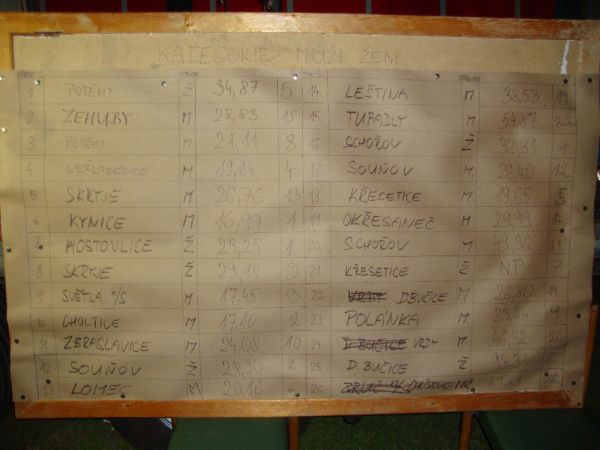 KATEGORIE MUŽI ŽENY
1 POTĚHY Ž 34,87 5
2 ZEHUBY M 28,83 15
3 POTĚHY M 21,11 8
4 M 19,84 4
5 SKRYJE M 26,76 13
6 KYNICE M 16,99 1
7 HOSTOVLICE Ž 23,25 1
8 SKRYJE Ž 29,18 3
9 SVĚTLÁ n/S M 17,45 3
10 CHOLTICE M 17,10 2
11 ZBRASLAVICE M 24,08 10
12 SOUŇOV Ž 28,90 2
13 LOMEC M 20,16 6
14. LEŠTINA M 38,53 19
15. TUPADLY M 54,87 22
16 SCHOŘOV Ž 32,31 4
17. SOUŇOV M 26,40 12
18. KŘESETICE M 19,65 5
19. OKŘESANEČ M 29,99
20. SCHOŘOV M 49,36 21
21. KŘESETICE Ž NP 7
22. DBUČICE M 26,80 14
23. POLÁNKA M 23,84 9
24. D.BUČICE VRDY M 46,32 20
25. D.BUČICE Ž 93,31
26.